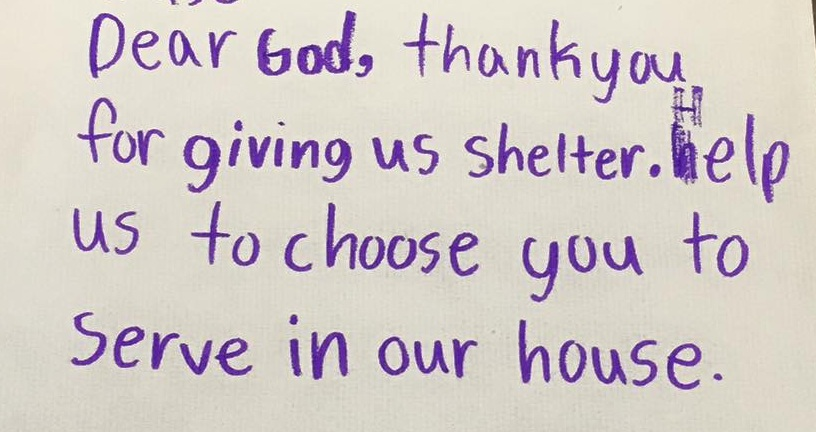 Dear God, thankyou
for giving us shelter. Help
us to choose you to
serve in our house.